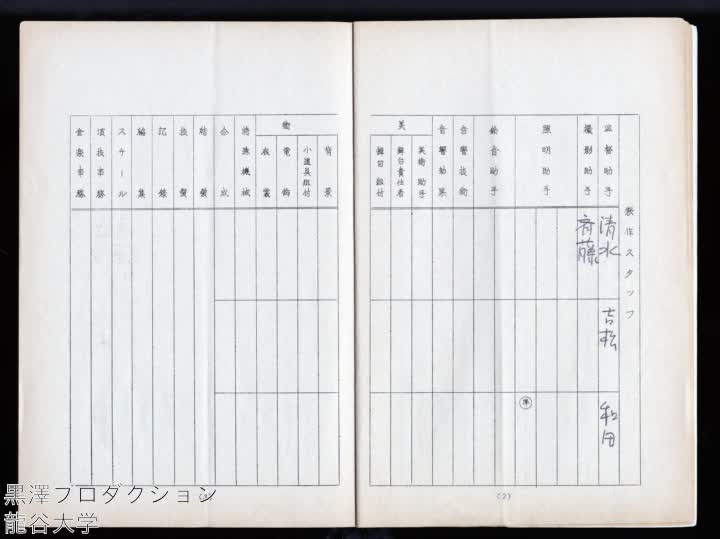 製作スタッフ
監督助手
清水
吉松
和田
撮影助手
斉藤
照明助手
準
録音助手
音響技術
音響効果
美
美術助手
舞台責任者
舞台組付
(2)
術
背景
小道具組付
電飾
衣裳
特殊機械
合成
結髪
技髪
記録
編集
スケール
演技事務
音楽事務
(3)
黒澤プロダクション
龍谷大学